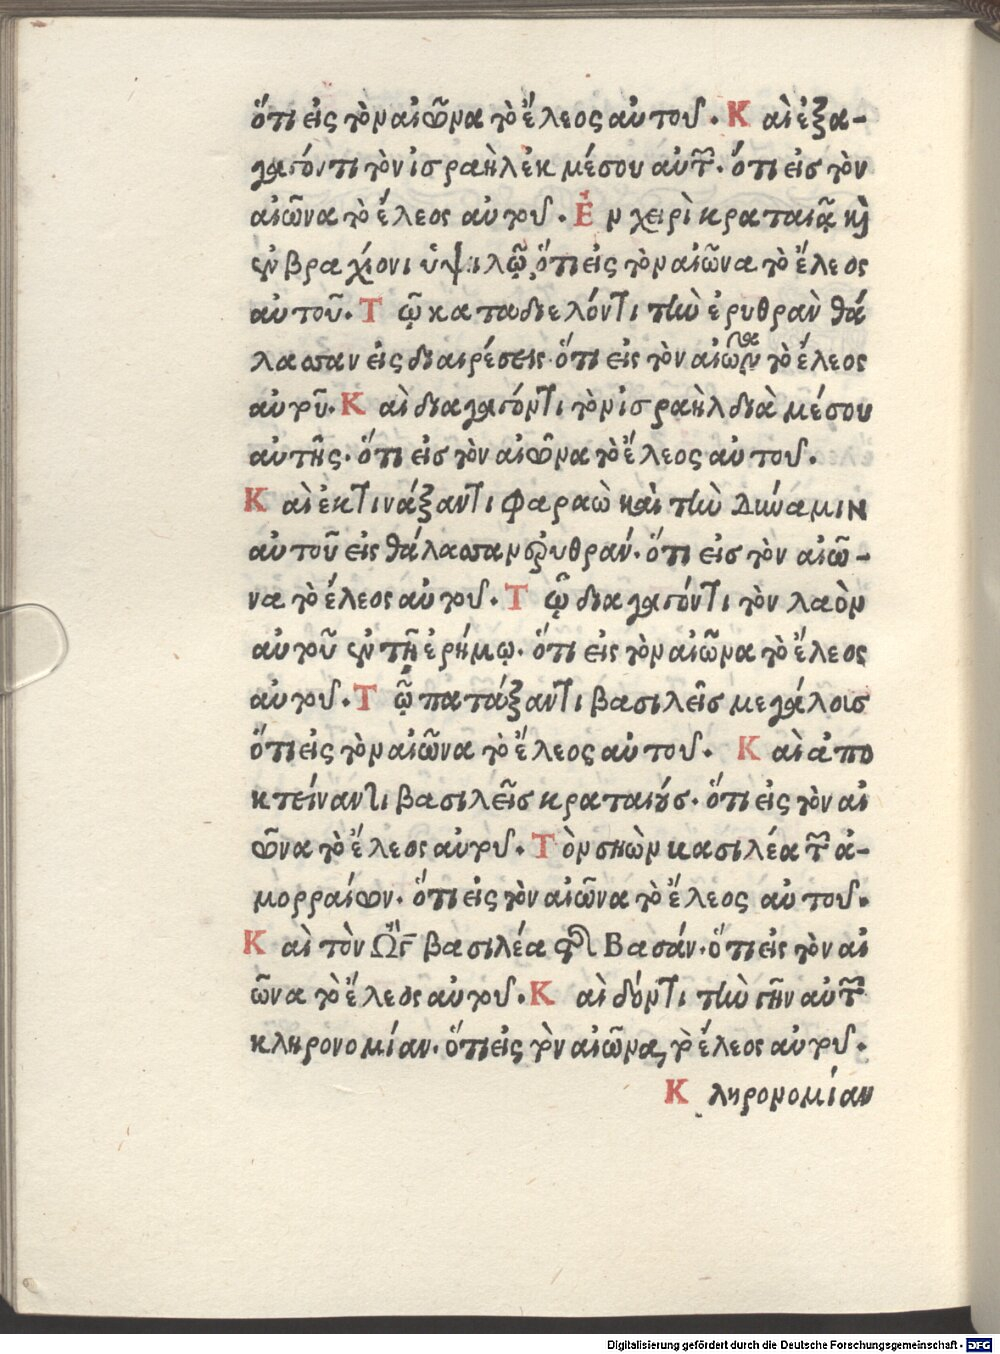 ὅτι εἰς τὸν αἰῶνα τὸ ἔλεος αὐτοῦ. Καὶ ἐξα-
γαγόντι τὸν ἰσραὴλ ἐκ μέσου αὐτῶν. ὅτι εἰς τὸν
αἰῶνα τὸ ἔλεος αὐτοῦ. Ἐν χειρὶ κραταιᾷ καὶ
ἐν βραχίονι ὑψιλῷ, ὅτι εἰς τὸν αἰῶνα τὸ ἔλεος
αὐτοῦ. Τῷ καταδιελόντι τὴν ἐρυθρὰν θά
λασσαν εἰς διαιρέσεις. ὅτι εἰς τὸν αἰῶνα τὸ ἔλεος
αὐτοῦ. Καὶ διαγαγόντι τὸν ἰσραὴλ διὰ μέσου
αὐτῆς. ὅτι εἰς τὸν αἰῶνα τὸ ἔλεος αὐτοῦ.
Καὶ ἐκτινάξαντι Φαραὼ καὶ τὴν Δύναμιν
αὐτοῦ εἰς θάλασσαν ἐρυθράν. ὅτι εἰς τὸν αἰῶ-
να τὸ ἔλεος αὐτοῦ. Τῷ διαγαγόντι τὸν λαὸν
αὐτοῦ ἐν τῇ ἐρήμῳ. ὅτι εἰς τὸν αἰῶνα τὸ ἔλεος
αὐτοῦ. Τῷ πατάξαντι βασιλεῖς μεγάλοις
ὅτι εἰς τὸν αἰῶνα τὸ ἔλεος αὐτοῦ. Καὶ ἀπο
κτείναντι βασιλεῖς κραταιούς. ὅτι εἰς τὸν αἰ
ῶνα τὸ ἔλεος αὐτοῦ. Τὸν σηὼν κασιλέα τῶν ἀ-
μορραίων. ὅτι εἰς τὸν αἰῶνα τὸ ἔλεος αὐτοῦ.
Καὶ τὸν Ὢγ βασιλέα τῆς Βασάν. ὅτι εἰς τὸν αἰ
ῶνα τὸ ἔλεος αὐτοῦ. Καὶ δόντι τὴν γῆν αὐτῶν
κληρονομίαν. ὅτι εἰς τὸν αἰῶνα, τὸ ἔλεος αὐτοῦ.
Κληρονομίαν
Digitalisierung gefördert durch die Deutsche Forschungsgemeinschaft - DFG